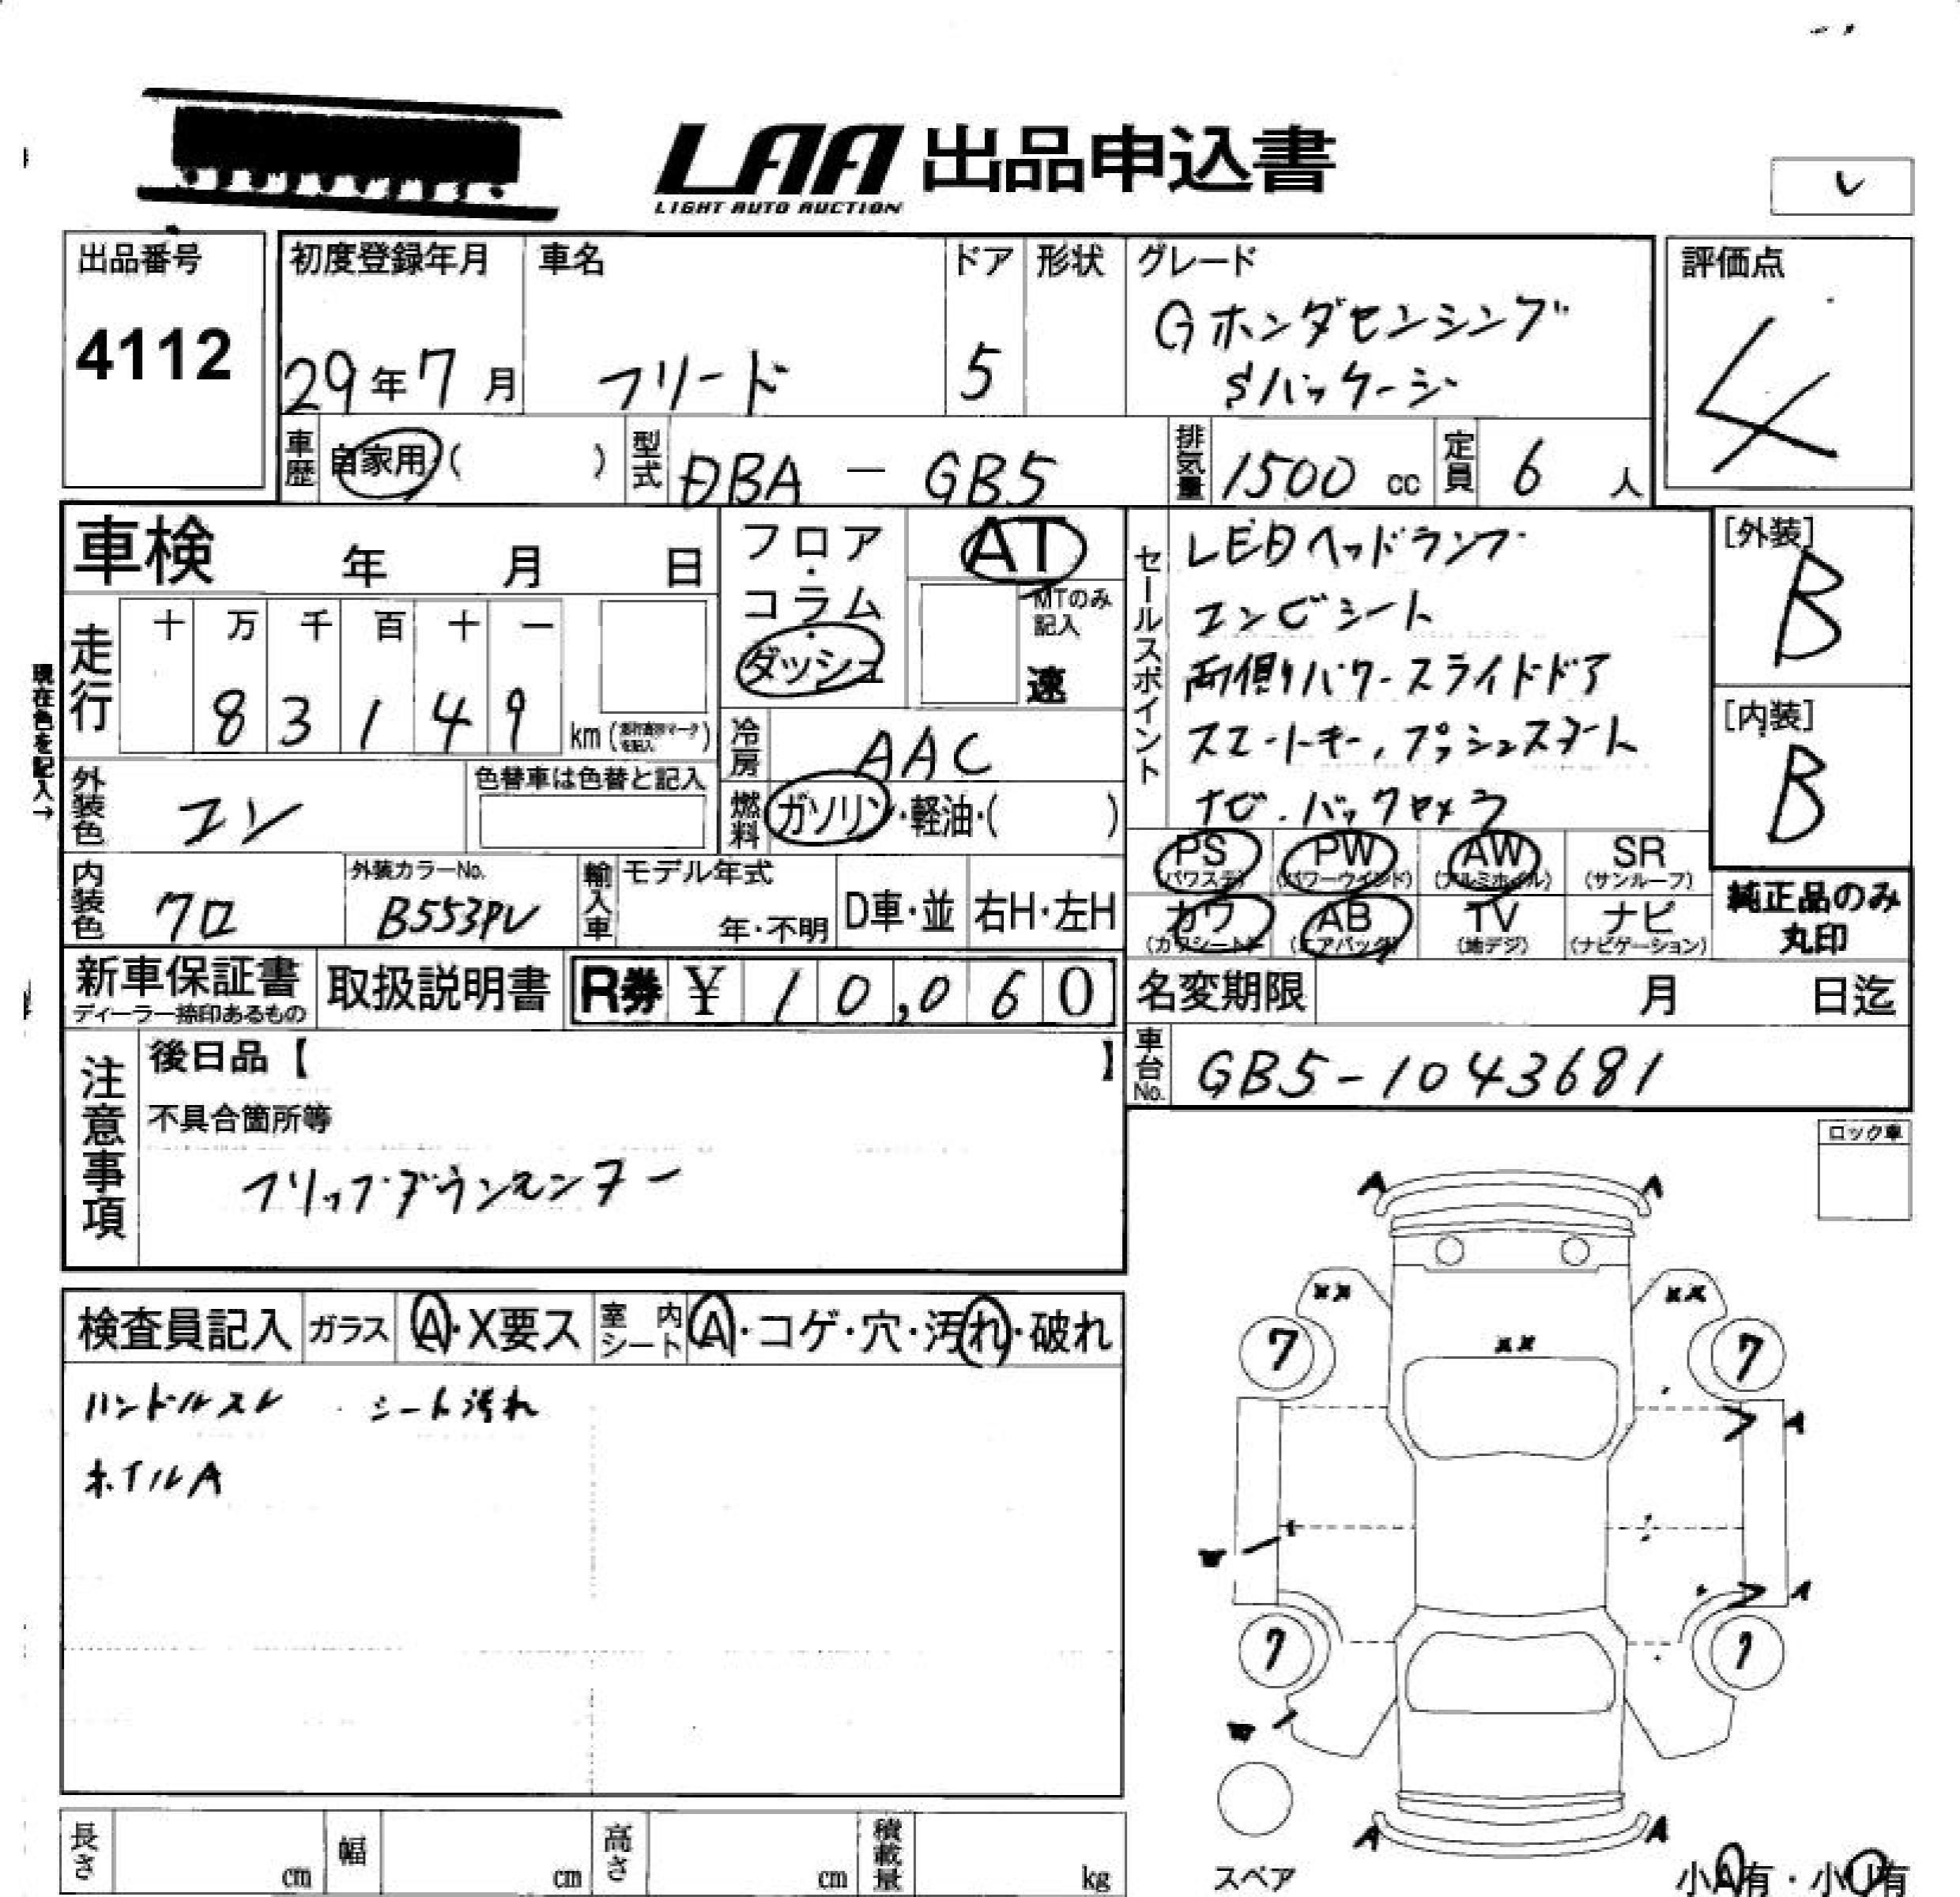 LAA 出品申込書
LIGHT AUTO AUCTION
レ
出品番号
4112
初度登録年月
29年7月
車名
フリード
ドア
5
形状
グレード
Gホンダセンシング
Sパッケージ
評価点
4
車歴 自家用 ( )
型式 DBA - GB5
排気量 1500 cc
定員 6 人
車検 年 月 日
フロア・コラム・ダッシュ
AT
MTのみ記入
速
セールスポイント
LEDヘッドランプ
コンビシート
両側パワースライドドア
スマートキー,プッシュスタート
ナビ.バックカメラ
[外装]
B
[内装]
B
現在色を記入→
走行
十 万 千 百 十 一
8 3 1 4 9
km
冷房 AAC
燃料 ガソリン・軽油・( )
外装色 コン
色替車は色替と記入
内装色 クロ
外装カラーNo.
B553PV
輸入車
モデル年式
年・不明
D車・並
右H・左H
PS (パワステ)
PW (パワーウインド)
AW (アルミホイル)
SR (サンルーフ)
カワ (カワシート)
AB (エアバッグ)
TV (地デジ)
ナビ (ナビゲーション)
純正品のみ
丸印
新車保証書
ディーラー捺印あるもの
取扱説明書
R券 ¥ 10,060
名変期限 月 日迄
車台No. GB5-1043681
注意事項
後日品【 】
不具合箇所等
フリップダウンモニター
ロック車
検査員記入
ガラス A・X要ス
室内シート A・コゲ・穴・汚れ・破れ
ハンドルスレ シート汚れ
ホイルA
A A
XX XX
XX
7 7
A
W
A
7 7
W
A A
スペア
小A有・小U有
長さ cm
幅 cm
高さ cm
積載量 kg